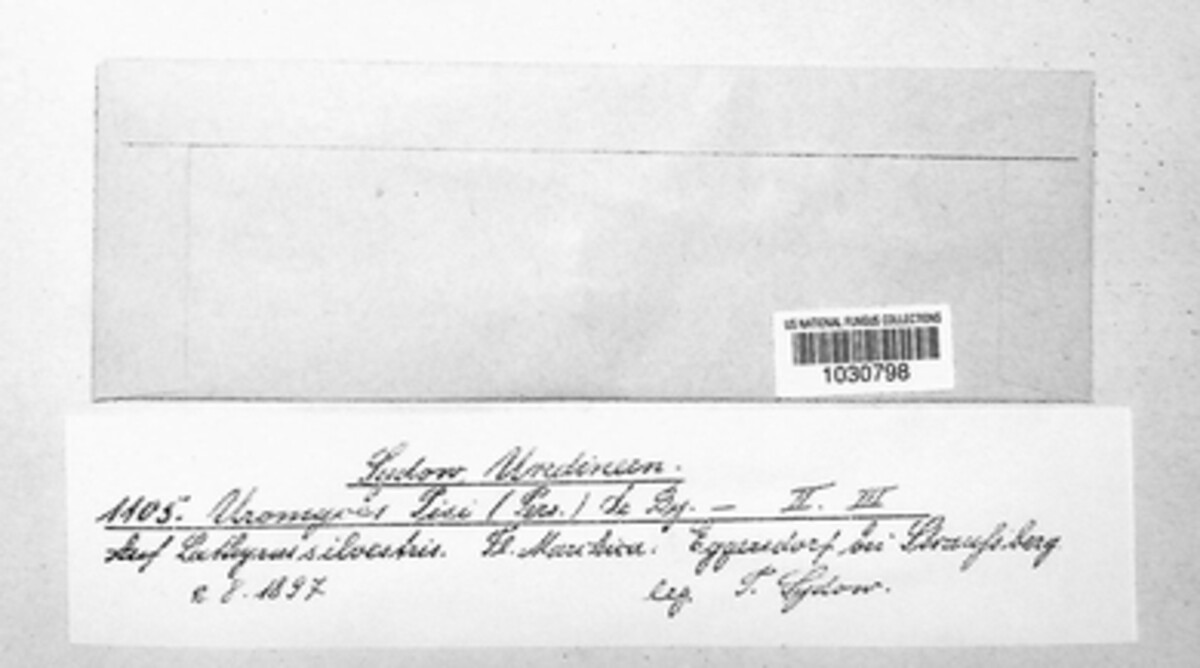 US NATIONAL FUNGUS COLLECTIONS
1030798
Sydow, Uredineen.
1105. Uromyces Pisi (Pers.) de By. — II. III
Auf Lathyrus silvestris. Fl. Marchica. Eggersdorf bei Straußberg
8. 1897 leg. P. Sydow.